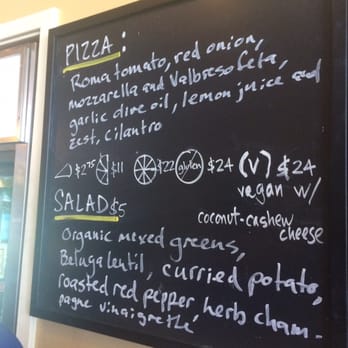 PIZZA:
Roma tomato, red onion,
mozzarella and Valbreso feta,
garlic olive oil, lemon juice and
zest, cilantro
$2.75 $11 $22 gluten $24 (V) $24
vegan w/
coconut-cashew
cheese
SALAD $5
Organic mixed greens,
Beluga lentil, curried potato,
roasted red pepper, herb cham-
pagne vinaigrette